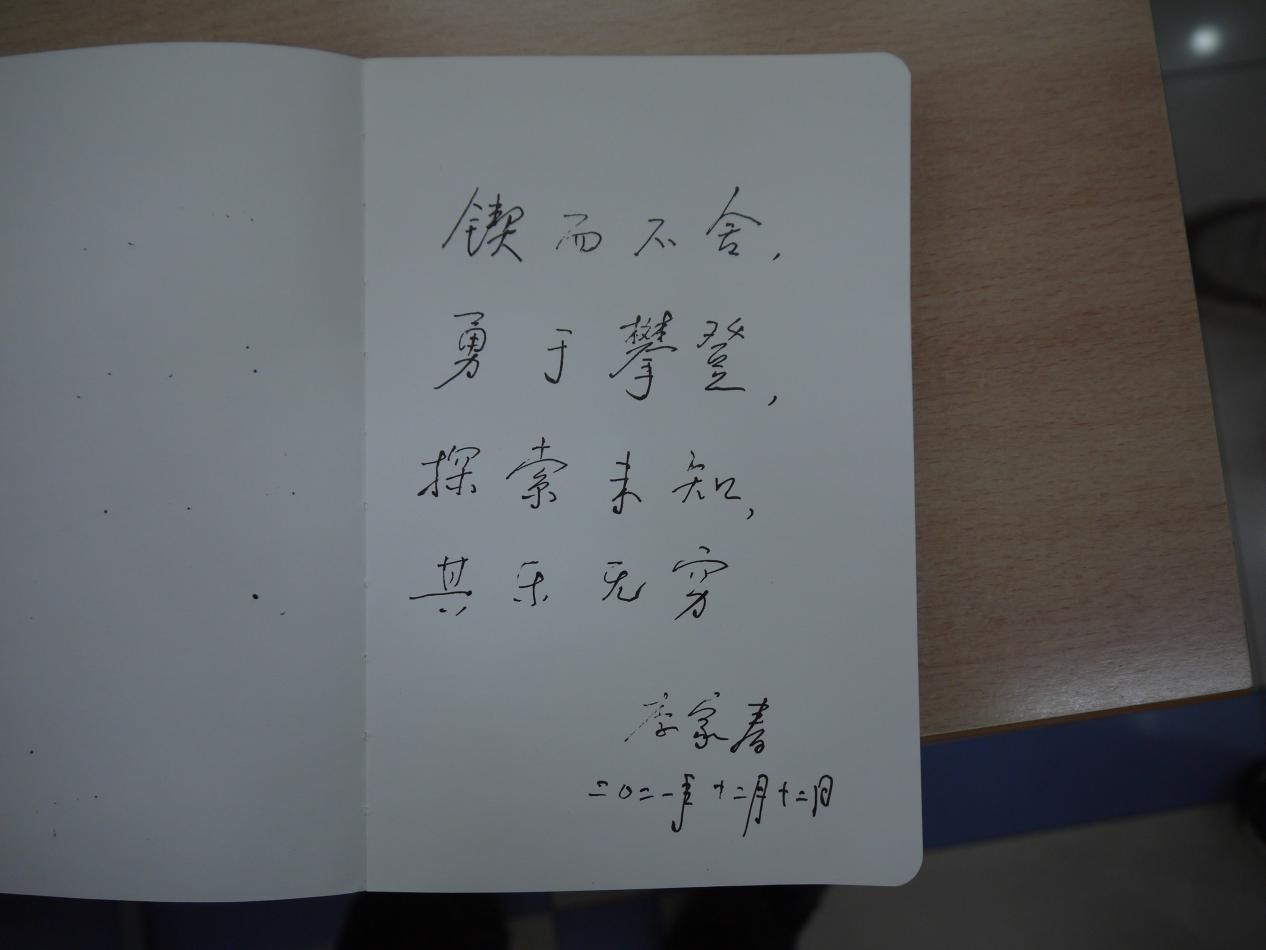 锲而不舍,
勇于攀登,
探索未知,
其乐无穷
李家春
二〇二一年十二月十二日